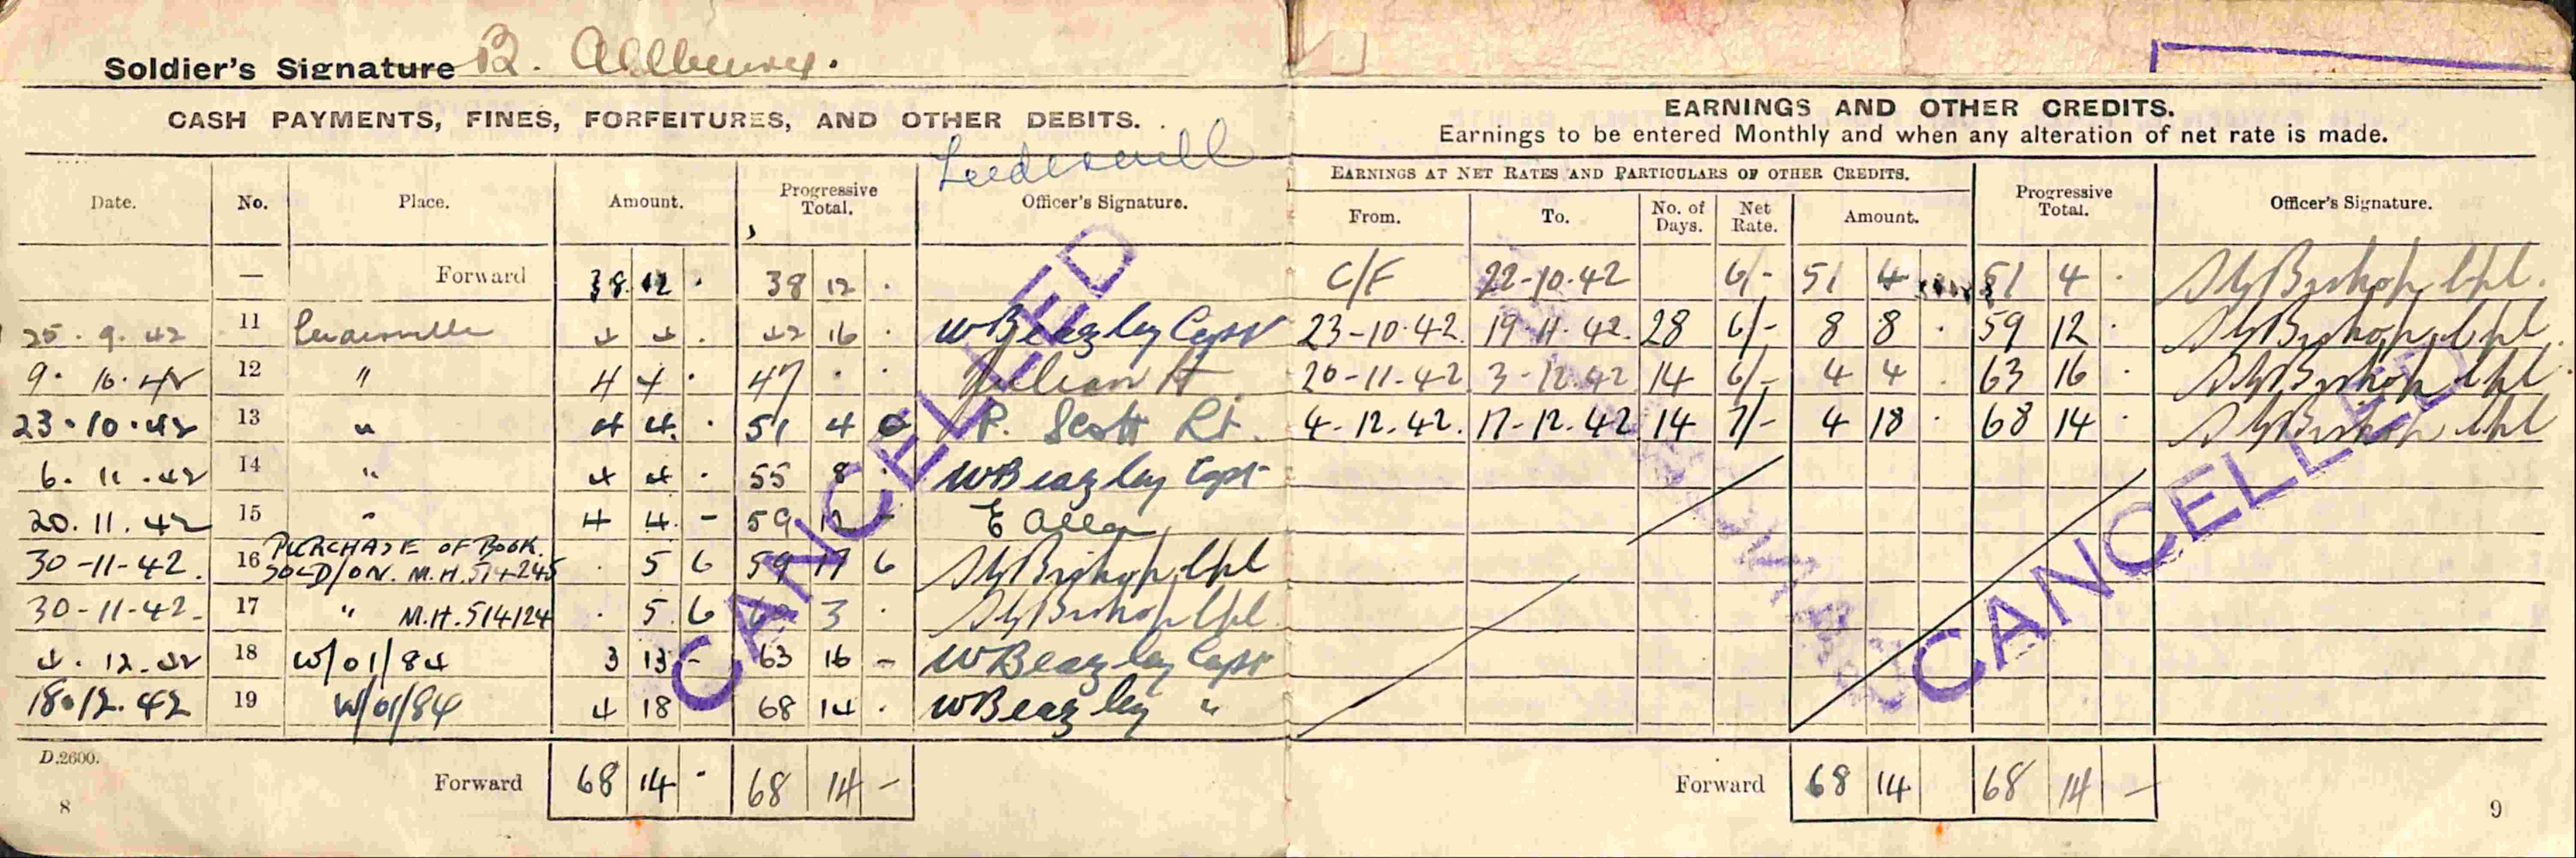 Soldier's Signature B.
CASH PAYMENTS, FINES, FORFEITURES, AND OTHER DEBITS.
Date. No. Place. Amount. Progressive Total. Officer's Signature.
— Forward 38 12 . 38 12 .
25. 9. 42 11 4 4 . 42 16 . WBeazley Capt
9. 10. 42 12 " 4 4 . 47 . .
23.10.42 13 " 4 4 . 51 4 0 P. Scott Lt.
6. 11. 42 14 " 4 4 . 55 8 WBeazley Capt
20. 11. 42 15 " 4 4 - 59 12 - E Allen
30-11-42. 16 PURCHASE OF BOOK. SOLD/ON. M.H. 514245 . 5 6 59 17 6 Bishop Cpl
30-11-42. 17 " M.H. 514124 . 5 6 60 3 . Bishop Cpl
4. 12. 42 18 W/01/84 3 13 - 63 16 - WBeazley Capt
18.12.42 19 W/01/84 4 18 68 14 . WBeazley "
Forward 68 14 . 68 14 -
D.2600.
8
CANCELLED
EARNINGS AND OTHER CREDITS.
Earnings to be entered Monthly and when any alteration of net rate is made.
EARNINGS AT NET RATES AND PARTICULARS OF OTHER CREDITS.
From. To. No. of Days. Net Rate. Amount. Progressive Total. Officer's Signature.
C/F 22-10-42 6/- 51 4 51 4 . Bishop Cpl.
23-10-42. 19-11-42. 28 6/- 8 8 . 59 12 . Bishop Cpl
20-11-42 3-12-42 14 6/- 4 4 . 63 16 . Bishop Cpl
4-12-42. 17-12-42 14 7/- 4 18 . 68 14 . Bishop Cpl
Forward 68 14 68 14 -
9
CANCELLED